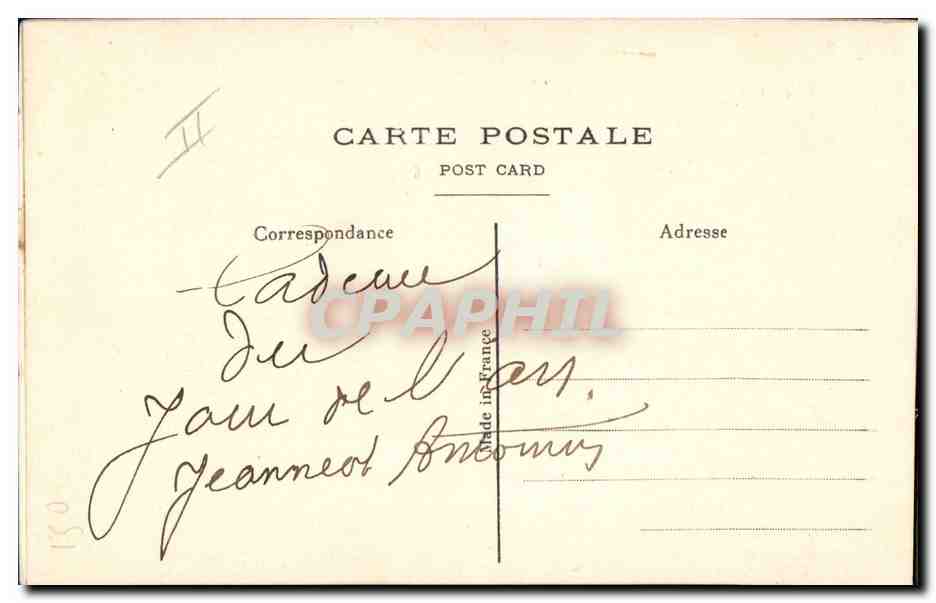 II
CARTE POSTALE
POST CARD
Correspondance
Adresse
Cadeau
du
Jour de l'an.
Jeannot
Made in France
CPAPHIL
150